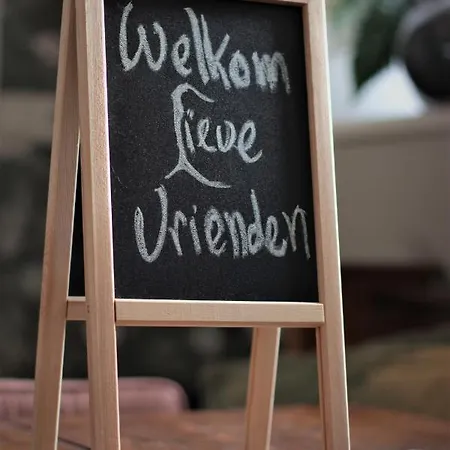 Welkom
Lieve
Vrienden